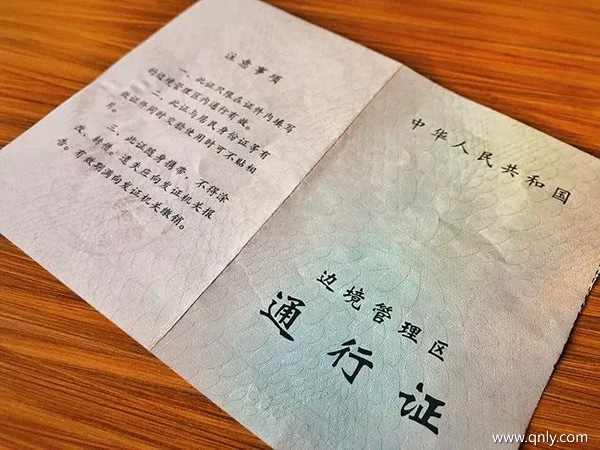 注意事项
一、此证只限在证件内填写
的边境管理区内通行有效。
二、此证与居民身份证等有
效证件同时交验使用时可不贴相
片。
三、此证随身携带，不得涂
改、转借。遗失应向发证机关报
告。有效期满向发证机关缴销。
中华人民共和国
边境管理区
通行证
www.qnly.com